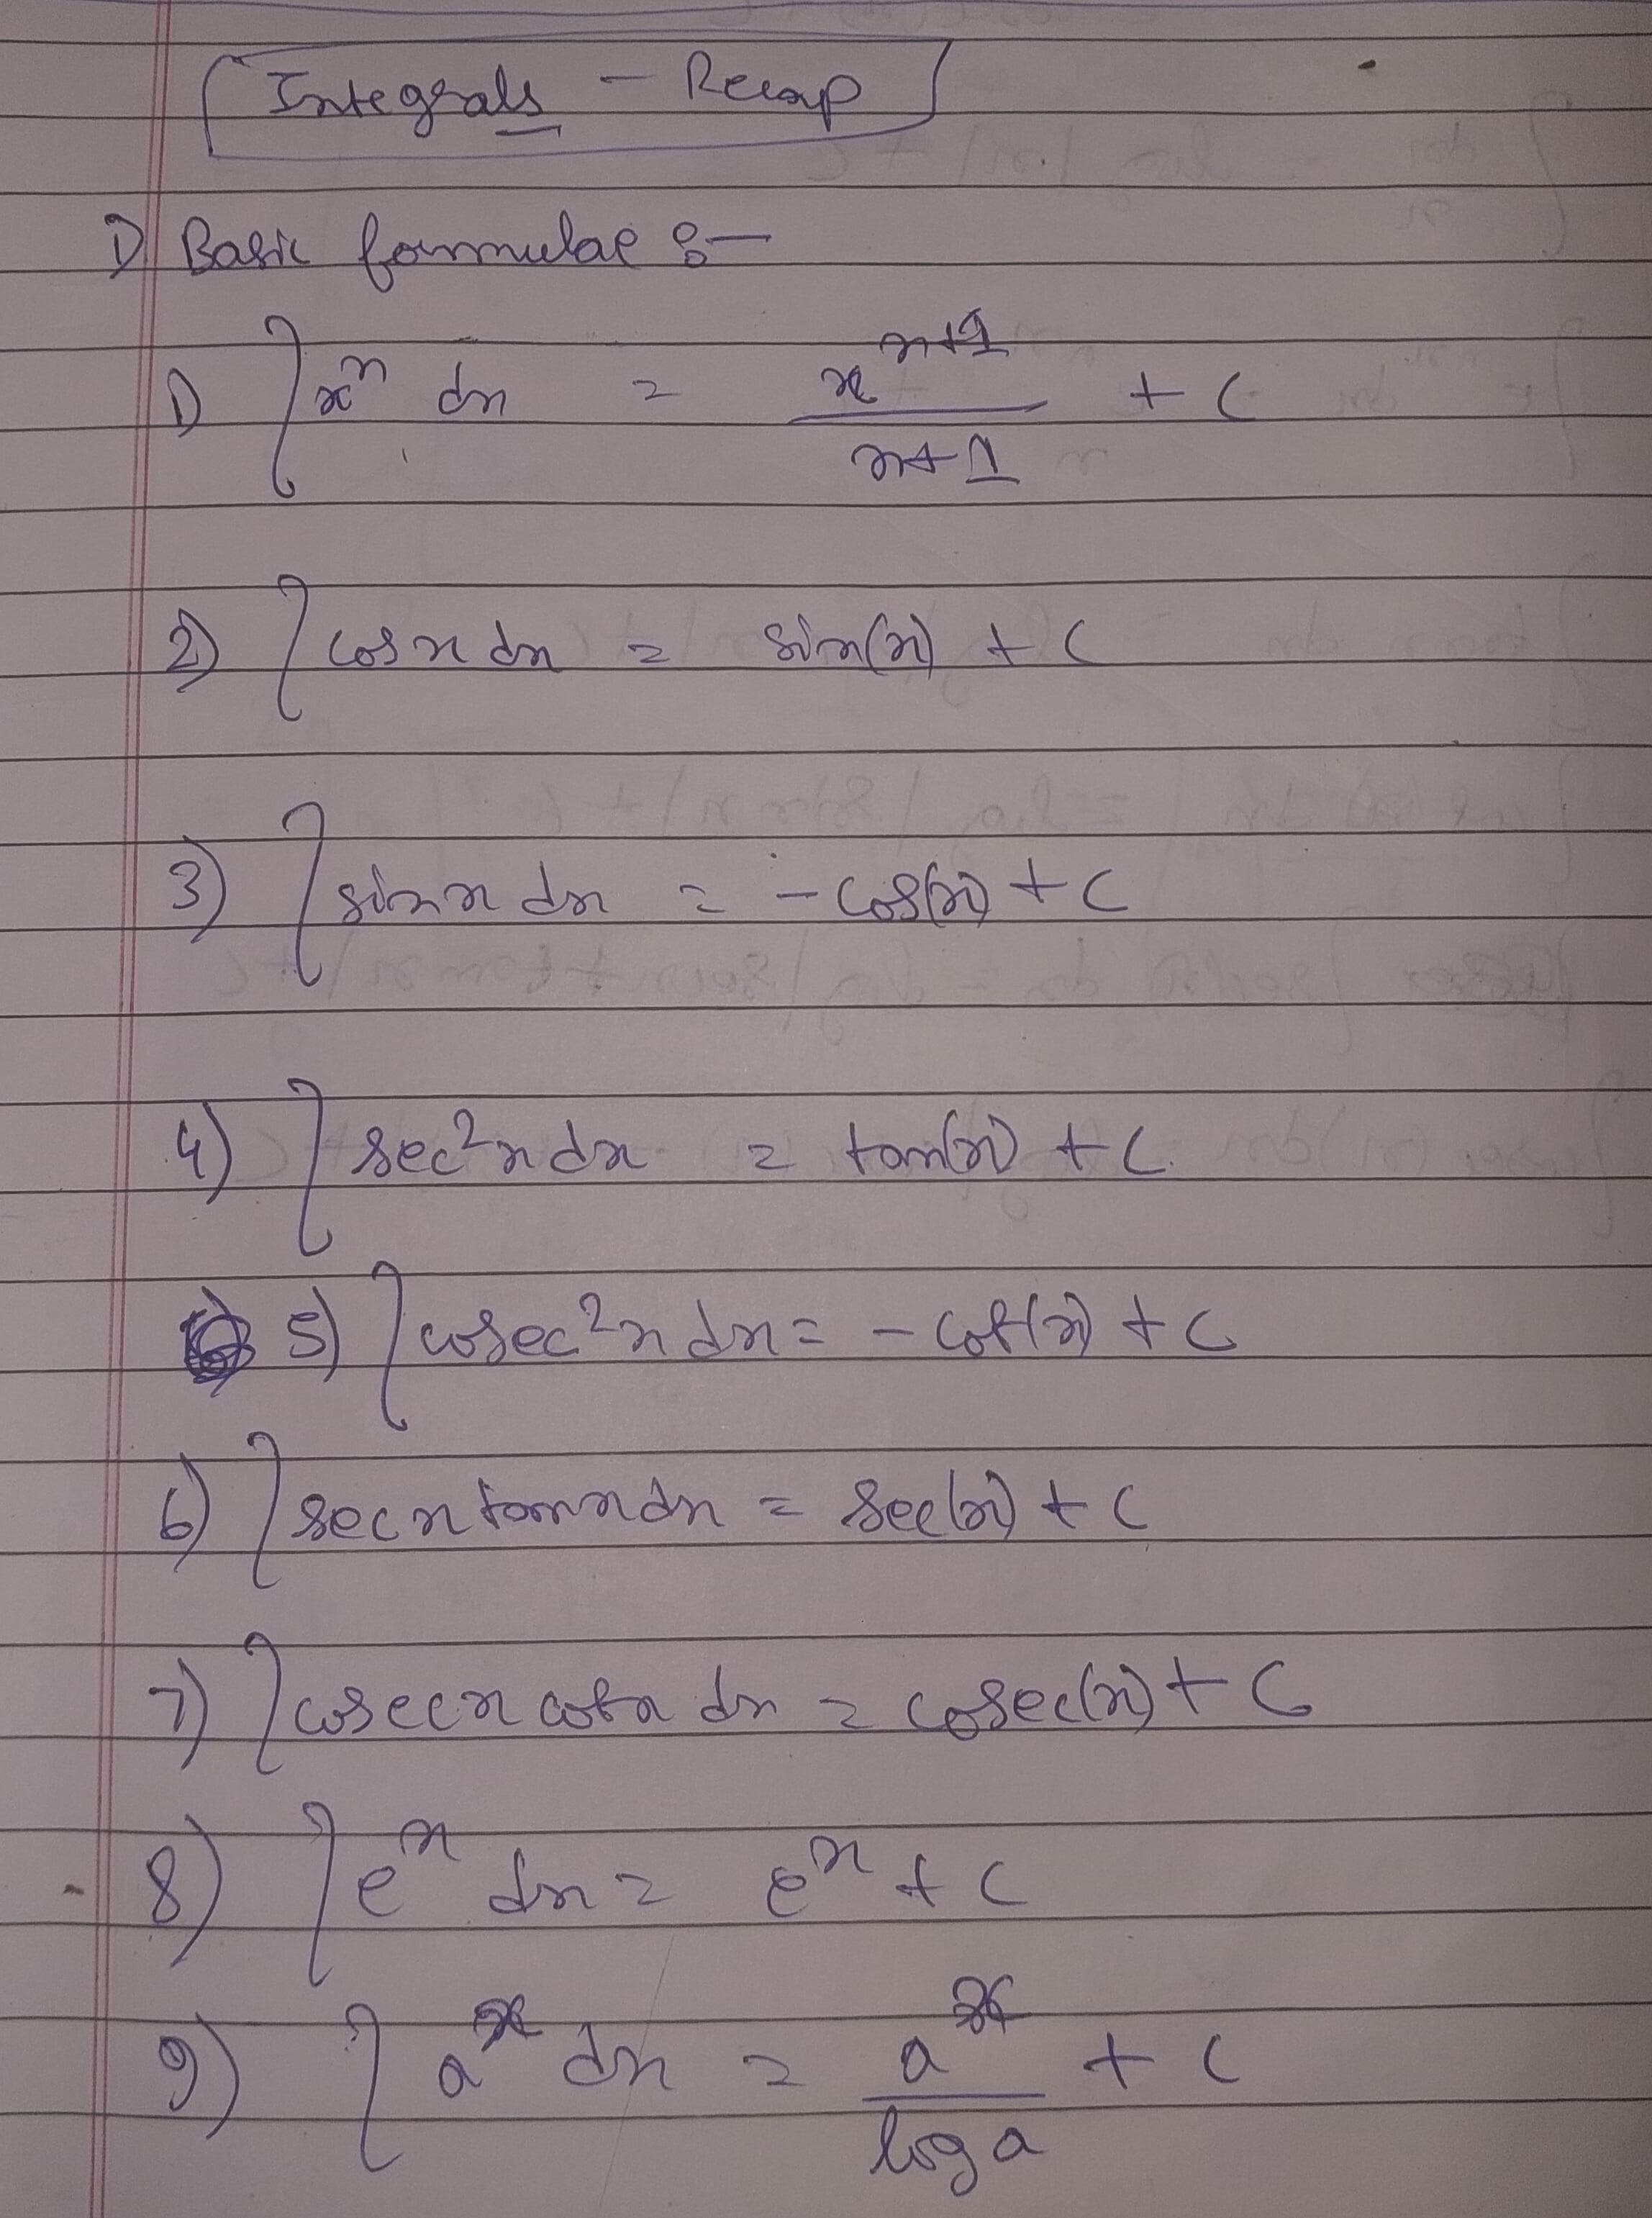 Integrals - Recap
1) Basic formulae :-
1) ∫x^n dx = x^(n+1)/(n+1) + C
2) ∫cosx dx = sin(x) + C
3) ∫sinx dx = -cos(x) + C
4) ∫sec²x dx = tan(x) + C
5) ∫cosec²x dx = -cot(x) + C
6) ∫secx tanx dx = sec(x) + C
7) ∫cosecx cotx dx = cosec(x) + C
8) ∫e^x dx = e^x + C
9) ∫a^x dx = a^x/log a + C